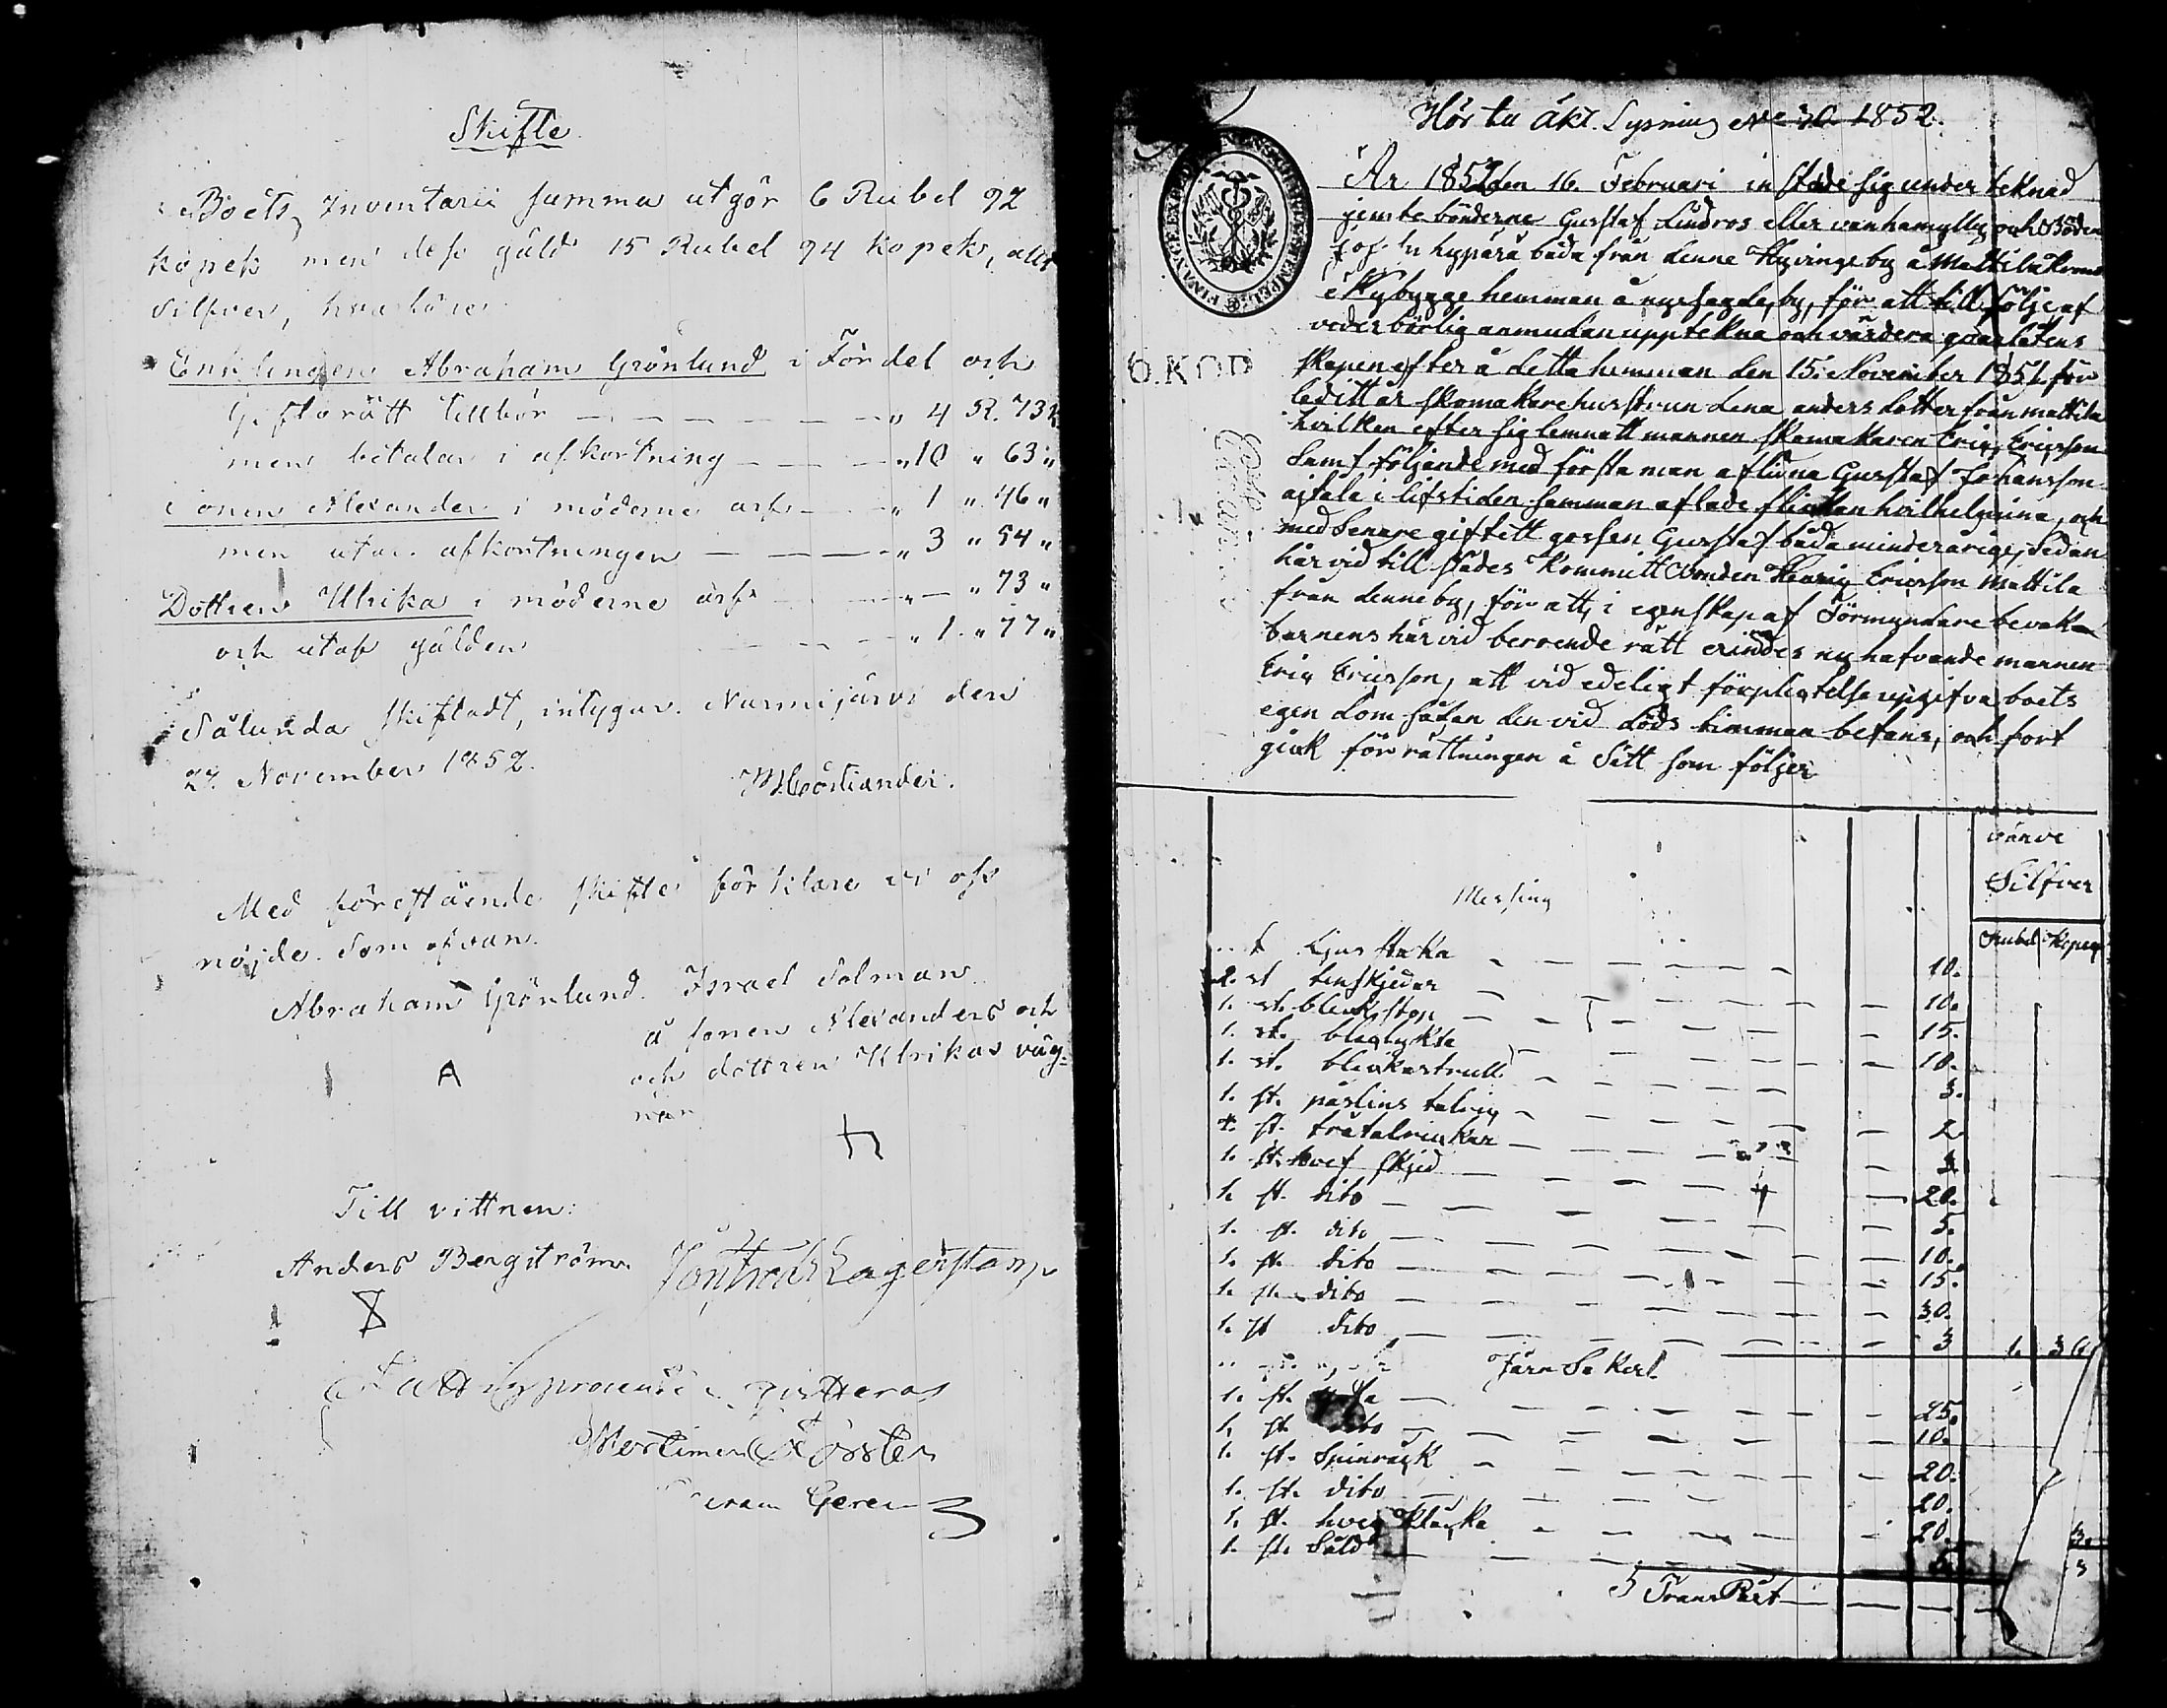 Skifte
Boets Inventarii summa utgör 6 Rubel 92
kopek men dess gäld 15 Rubel 94 kopek, allt
Silfver, hvarföre
Enklingen Abraham Grönlund i Fördel och
Giftorätt tillbör — — — — — „ 4 R. 73 k
men betalar i afkortning — — — „ 10 „ 63 „
Sonen Alexander i möderne arf — — „ 1 „ 46 „
men utar. afkortningen — — — — „ 3 „ 54 „
Dottren Ulrika i möderne arf — — „ — „ 73 „
och utaf gälden — — — „ 1. „ 77 „
Sålunda skiftadt, intygar. Nurmijärvi den
27. November 1852.
Med förestående skifte förklare vi oss
nöjde. Som ofvan.
Abraham Grönlund. Israel Solman
A
å sonen Alexanders och
och dottren Ulrikas väg-
nar
Till vittnen:
Anders Bergström. Lagerstam
qvitteras
Mortimer Förster
Hör till Akt. Lysning No 30. 1852.
År 1852 den 16 Februari instäde sig undertecknad
jemte bönderne Gustaf Lindros eller vanhamylly och Bonden
hypärä båda från denne Hyvinge by å Mattila Krono
Nybygge hemman å nyssagde by, för att till följe af
vederbörlig anmodan uppteckna och värdera qvarlåtens
6. KOP
skapen efter å detta hemman den 15. November 1851 för
ledit år skomakarehustrun Lena andersdotter från mattila
hvilken efter sig lemnatt mannen skomakaren Eric, Ericsson
Samt följande med första man aflidna Gustaf Johansson
i lifstiden samman aflade flickan hvilhelmina, och
med senare giftett gossen Gustaf båda minderårige, Sedan
härvid till stádes kommitt Bonden Henric Ericsson Mattila
från denne by, för att, i egenskap af Förmyndare bevaka
barnens härvid beroende rätt erindes ny hafvande mannen
Eric Ericsson, att vid edeligt förpligtelse uppgifva boets
egendom sådan den vid döds timman befans, och fort
gick förrättningen å Sätt som följer
värde
Silfver
Messing
Rubel Kopek
1 Ljusstaka — — — 10.
2. st tenskjedar — — — 10.
1. st. bleckstop — — — 15.
1. st. blecklykta — — — 10.
1. st. — — — 3.
1. st. påslins talrig — — — 2.
4. st. trätalrickar — — — 3
1. st. skjed — — — 20.
1. st. dito — — — 5.
1. st. dito — — — 10.
1. st. dito — — — 15.
1. st. dito — — — 30.
1. st dito — — — 3 1. 36
Järn Saker
1. st. — — — 25.
1. st. dito — — — 10.
1. st. Spinrack — — — 20.
1. st. dito — — — 20.
1. st. — — — 20.
1. st. Såld — — — 5.
TransPort — — —